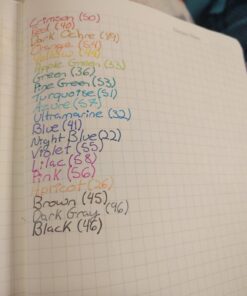 Crimson (50)
Red (40)
Dark Ochre (39)
Orange (54)
Yellow (44)
Apple Green (53)
Green (36)
Pine Green (53)
Turquoise (51)
Azure (57)
Ultramarine (32)
Blue (41)
Night Blue (22)
Violet (55)
Lilac (58)
Pink (56)
Apricot (26)
Brown (45)
Dark Gray (96)
Black (46)